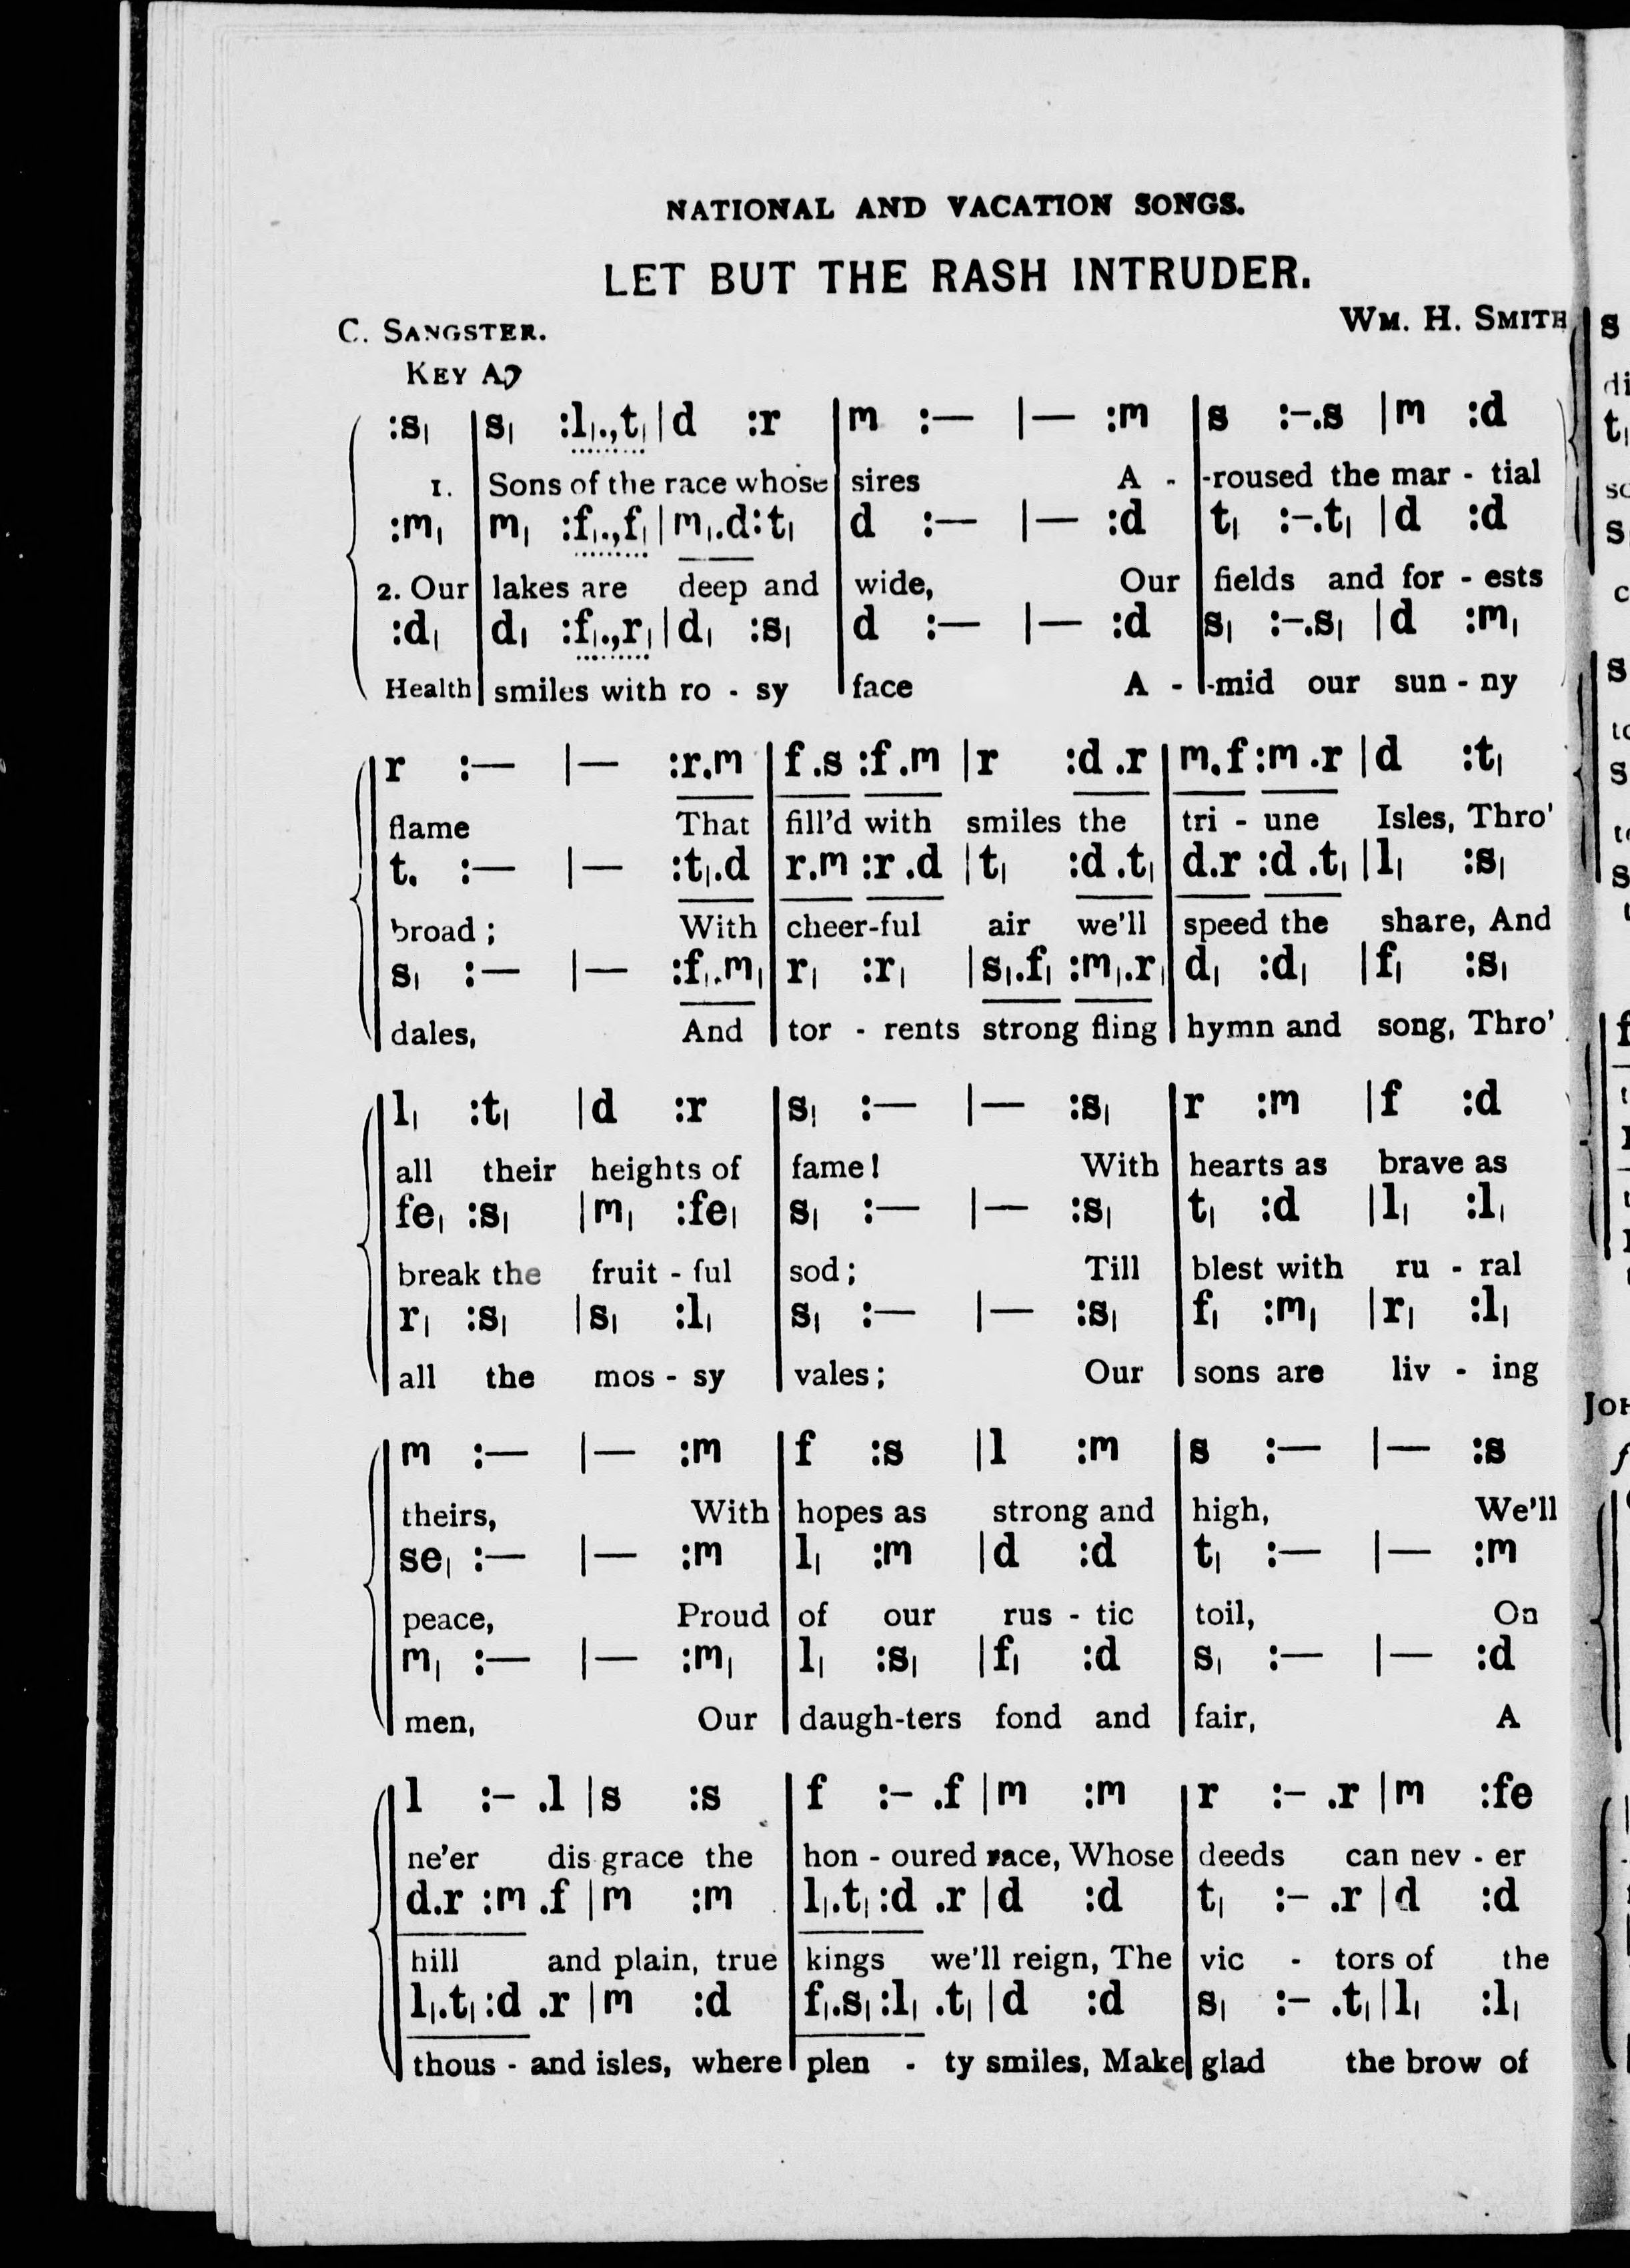 NATIONAL AND VACATION SONGS.
LET BUT THE RASH INTRUDER.
C. SANGSTER.
WM. H. SMITH
KEY A♭
:s₁ | s₁ :l₁.,t₁ | d :r | m :— | — :m | s :–.s | m :d
1. Sons of the race whose sires A - -roused the mar - tial
:m₁ | m₁ :f₁.,f₁ | m₁.d:t₁ | d :— | — :d | t₁ :–.t₁ | d :d
2. Our lakes are deep and wide, Our fields and for - ests
:d₁ | d₁ :f₁.,r₁ | d₁ :s₁ | d :— | — :d | s₁ :–.s₁ | d :m₁
Health smiles with ro - sy face A - -mid our sun - ny
r :— | — :r.m | f.s :f.m | r :d.r | m.f :m.r | d :t₁
flame That fill'd with smiles the tri - une Isles, Thro'
t. :— | — :t₁.d | r.m :r.d | t₁ :d.t₁ | d.r :d.t₁ | l₁ :s₁
broad; With cheer-ful air we'll speed the share, And
s₁ :— | — :f₁.m₁ | r₁ :r₁ | s₁.f₁ :m₁.r₁ | d₁ :d₁ | f₁ :s₁
dales, And tor - rents strong fling hymn and song, Thro'
l₁ :t₁ | d :r | s₁ :— | — :s₁ | r :m | f :d
all their heights of fame! With hearts as brave as
fe₁ :s₁ | m₁ :fe₁ | s₁ :— | — :s₁ | t₁ :d | l₁ :l₁
break the fruit - ful sod; Till blest with ru - ral
r₁ :s₁ | s₁ :l₁ | s₁ :— | — :s₁ | f₁ :m₁ | r₁ :l₁
all the mos - sy vales; Our sons are liv - ing
m :— | — :m | f :s | l :m | s :— | — :s
theirs, With hopes as strong and high, We'll
se₁ :— | — :m | l₁ :m | d :d | t₁ :— | — :m
peace, Proud of our rus - tic toil, On
m₁ :— | — :m₁ | l₁ :s₁ | f₁ :d | s₁ :— | — :d
men, Our daugh-ters fond and fair, A
l :– .l | s :s | f :– .f | m :m | r :– .r | m :fe
ne'er dis grace the hon - oured race, Whose deeds can nev - er
d.r :m .f | m :m | l₁.t₁ :d .r | d :d | t₁ :– .r | d :d
hill and plain, true kings we'll reign, The vic - tors of the
l₁.t₁ :d .r | m :d | f₁.s₁ :l₁ .t₁ | d :d | s₁ :– .t₁ | l₁ :l₁
thous - and isles, where plen - ty smiles, Make glad the brow of